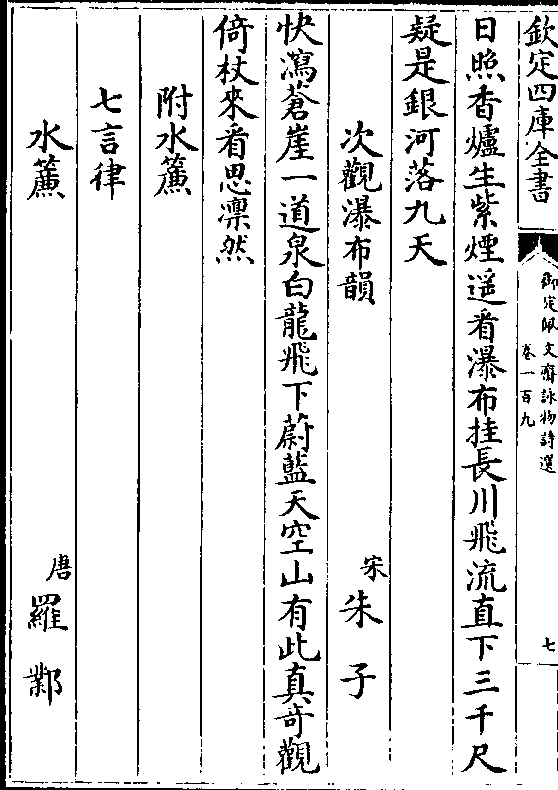 欽定四庫全書
御定佩文齋詠物詩選
卷一百九
七
日照香爐生紫煙遥看瀑布挂長川飛流直下三千尺
疑是銀河落九天
次觀瀑布韻 宋 朱子
快瀉蒼崖一道泉白龍飛下蔚藍天空山有此真竒觀
倚杖來看思凛然
附水簾
七言律
水簾 唐 羅鄴